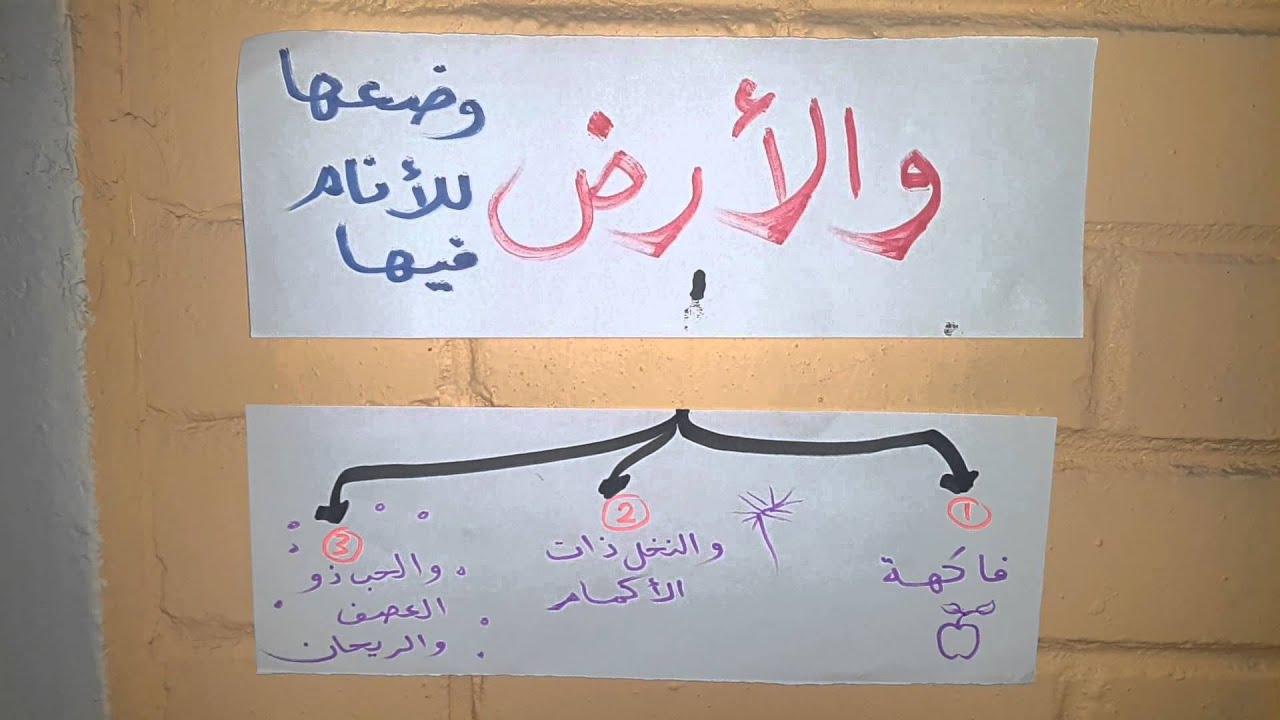 والأرض
وضعها
للأنام
فيها
1
فاكهة
2
والنخل ذات
الأكمام
3
والحب ذو
العصف
والريحان